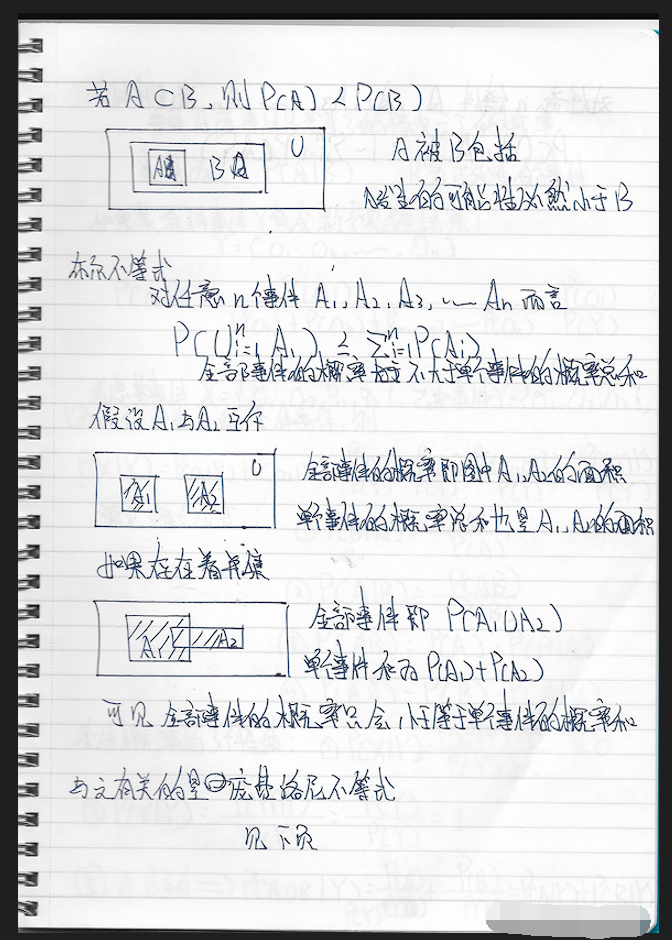 若 A⊂B，则 P(A) < P(B)
U
A B
A 被 B 包括
A发生的可能性必然小于 B
布尔不等式
对任意 n 个事件 A₁, A₂, A₃, … An 而言
P(⋃ⁿᵢ₌₁ Aᵢ) ≤ ∑ⁿᵢ₌₁ P(Aᵢ)
全部事件的概率 不大于单个事件的概率总和
假设 A₁ 与 A₂ 互斥
U
A₁ A₂
全部事件的概率即图中 A₁, A₂ 的面积
单个事件的概率总和也是 A₁, A₂ 的面积
如果存在着并集
A₁ A₂
全部事件即 P(A₁∪A₂)
单个事件和为 P(A₁)+P(A₂)
可见 全部事件的概率只会小于等于单个事件的概率和
与之有关的是 庞费洛尼不等式
见下页